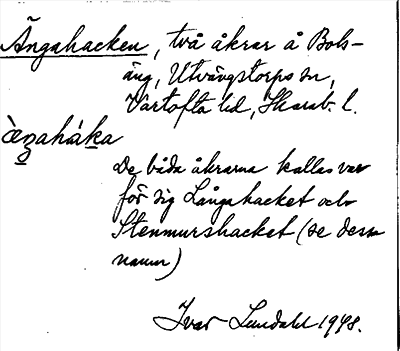 Ängahacken, två åkrar å Bols-
äng, Utvängstorps sn,
Vartofta hd, Skarab. l.
àŋahák̲a
De båda åkrarna kallas var
för sig Långahacket och
Stenmurshacket (se dessa
namn)
Ivar Lundahl 1948.